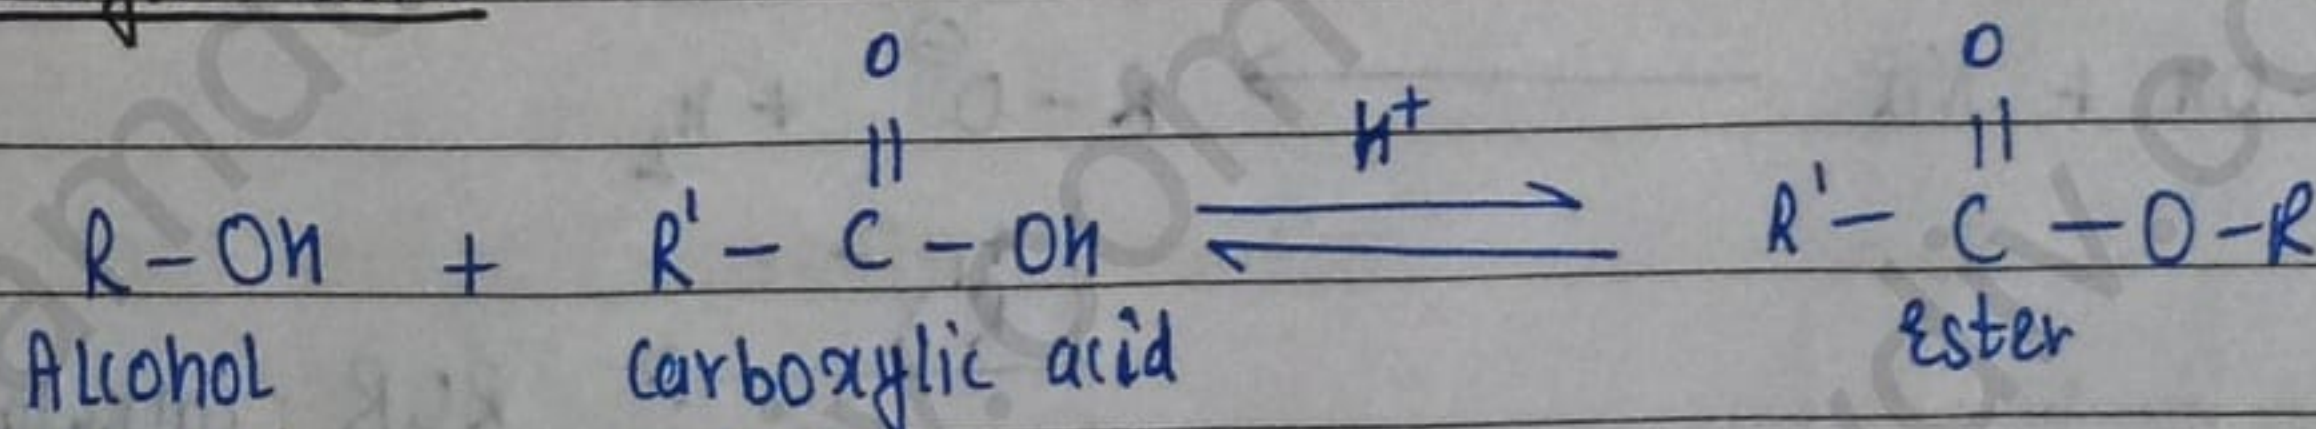 O O
|| H+ ||
R-OH + R'-C-OH ⇌ R'-C-O-R
Alcohol Carboxylic acid Ester